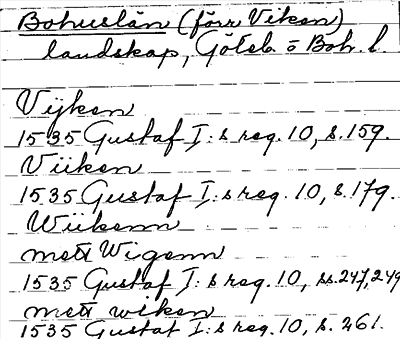 Bohuslän (förr Viken)
landskap, Göteb. o Boh. l.
Vijken
1535 Gustaf I:s reg. 10, s. 159.
Viiken
1535 Gustaf I:s reg. 10, s. 179.
Wiikenn
mett Wigenn
1535 Gustaf I:s reg. 10, ss. 247, 249
mett wiken
1535 Gustaf I:s reg. 10, s. 261.